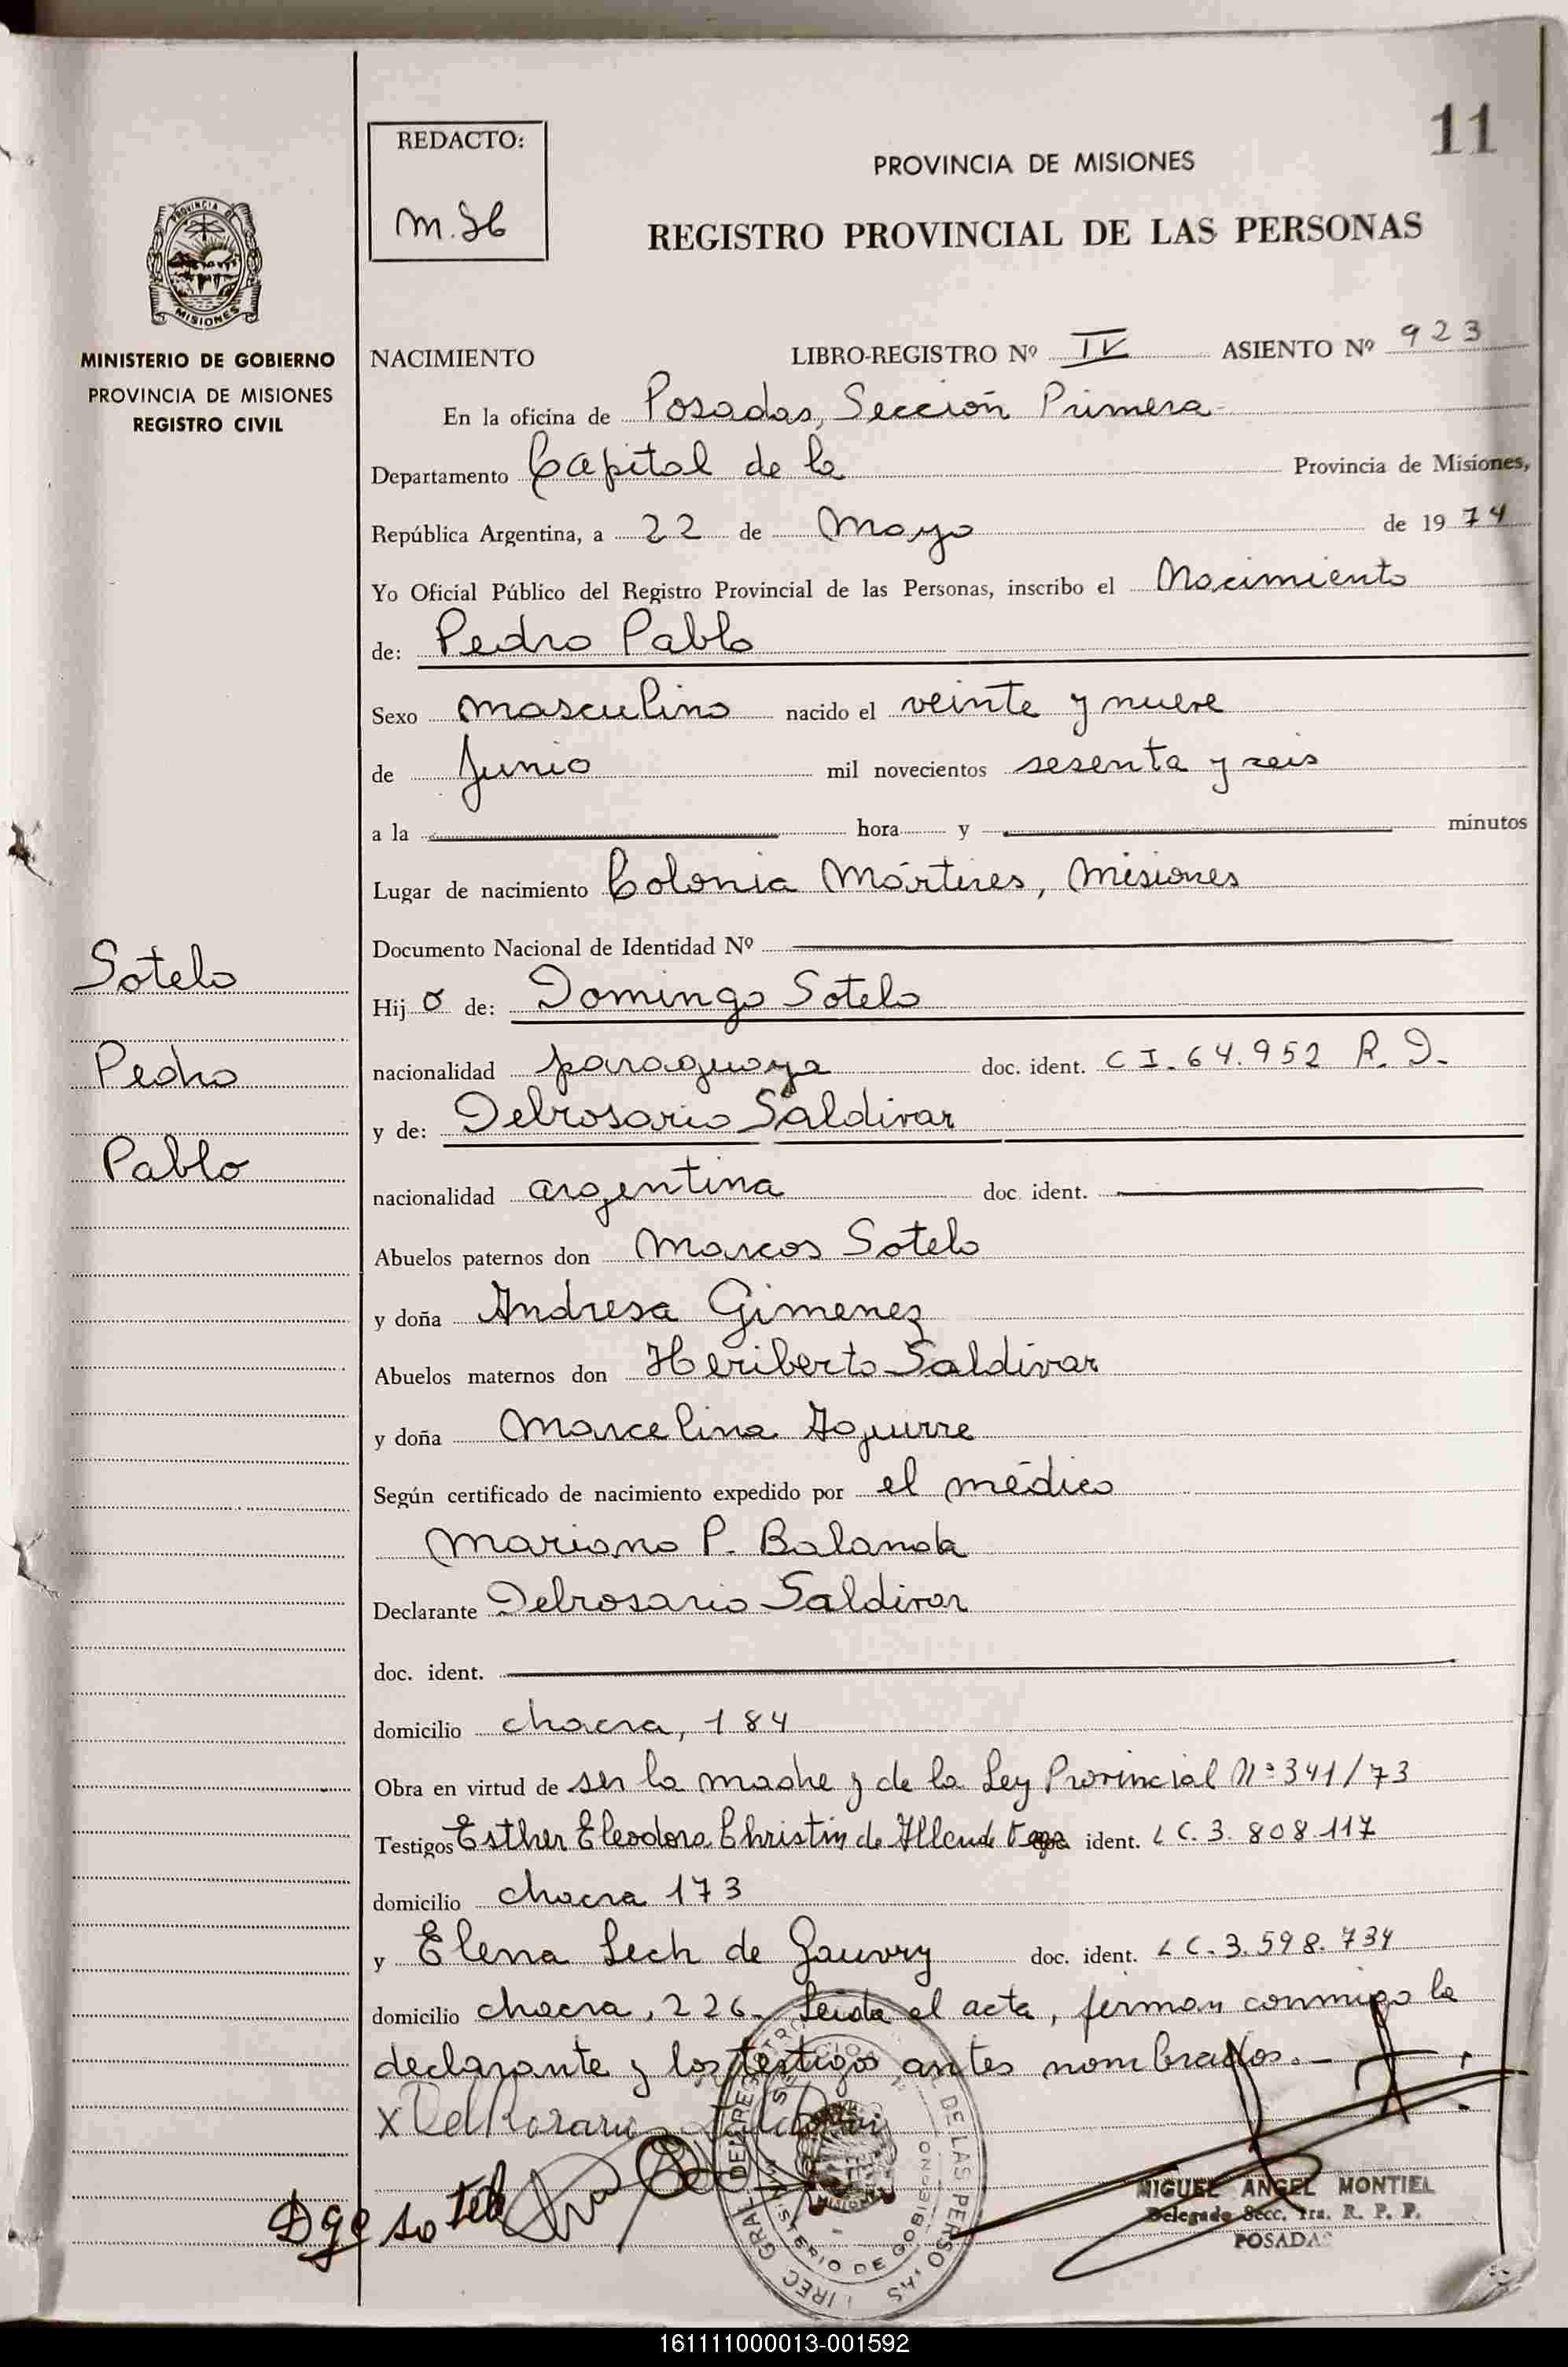 11
REDACTO:
PROVINCIA DE MISIONES
REGISTRO PROVINCIAL DE LAS PERSONAS
PROVINCIA DE
MISIONES
MINISTERIO DE GOBIERNO
PROVINCIA DE MISIONES
REGISTRO CIVIL
NACIMIENTO LIBRO-REGISTRO Nº IV ASIENTO Nº 923
En la oficina de Posadas, Sección Primera
Departamento Capital de la Provincia de Misiones,
República Argentina, a 22 de Mayo de 1974
Yo Oficial Público del Registro Provincial de las Personas, inscribo el Nacimiento
de: Pedro Pablo
Sexo masculino nacido el veinte y nueve
de Junio mil novecientos sesenta y seis
a la hora y minutos
Lugar de nacimiento Colonia Mártires, Misiones
Documento Nacional de Identidad Nº
Sotelo
Pedro
Pablo
Hijo de: Domingo Sotelo
nacionalidad paraguaya doc. ident. C I. 64.952 R. D.
y de: Delrosario Saldivar
nacionalidad argentina doc. ident.
Abuelos paternos don Marcos Sotelo
y doña Andresa Gimenez
Abuelos maternos don Heriberto Saldivar
y doña Marcelina Aguirre
Según certificado de nacimiento expedido por el médico
Mariano P. Balanda
Declarante Delrosario Saldivar
doc. ident.
domicilio chacra, 184
Obra en virtud de ser la madre y de la Ley Provincial Nº 341/73
Testigos Esther Eleodora Christin de Allende ident. L C. 3.808.117
domicilio chacra 173
y Elena Lech de Gauvry doc. ident. L C. 3.598.734
domicilio chacra, 226. Leida el acta, firman conmigo la
declarante y los testigos antes nombrados.-
x Del Rosario
Dgo Sotelo
MINISTERIO DE GOBIERNO
MIGUEL ANGEL MONTIEL
Delegado Secc. 1ra. R. P. P.
POSADAS
161111000013-001592